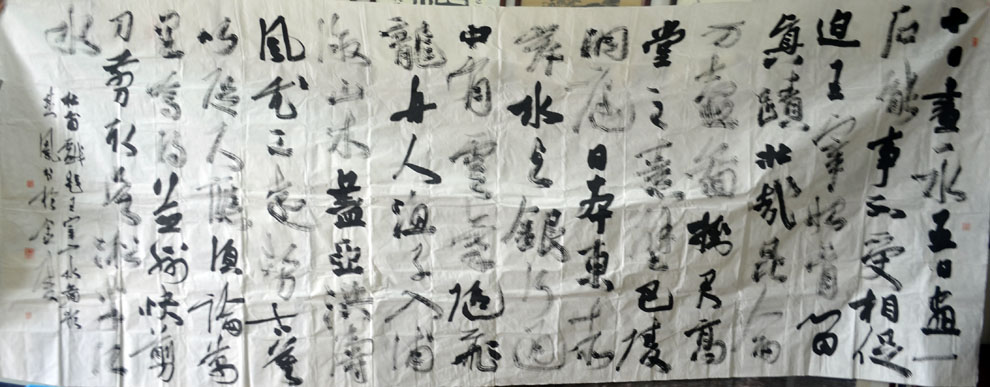 十日畫一水五日畫一
石能事不受相促
迫王宰始肯留
真蹟壯哉昆侖
方壺圖掛君高
堂之素壁巴陵
洞庭日本東赤
岸水與銀河通
中有雲氣隨飛
龍舟人漁子入浦
溆山木盡亞洪濤
風尤工遠勢古莫
比咫尺應須論萬
里焉得并州快剪
刀剪取吳淞半江
水
杜甫戲題王宰山水圖歌
風書於金